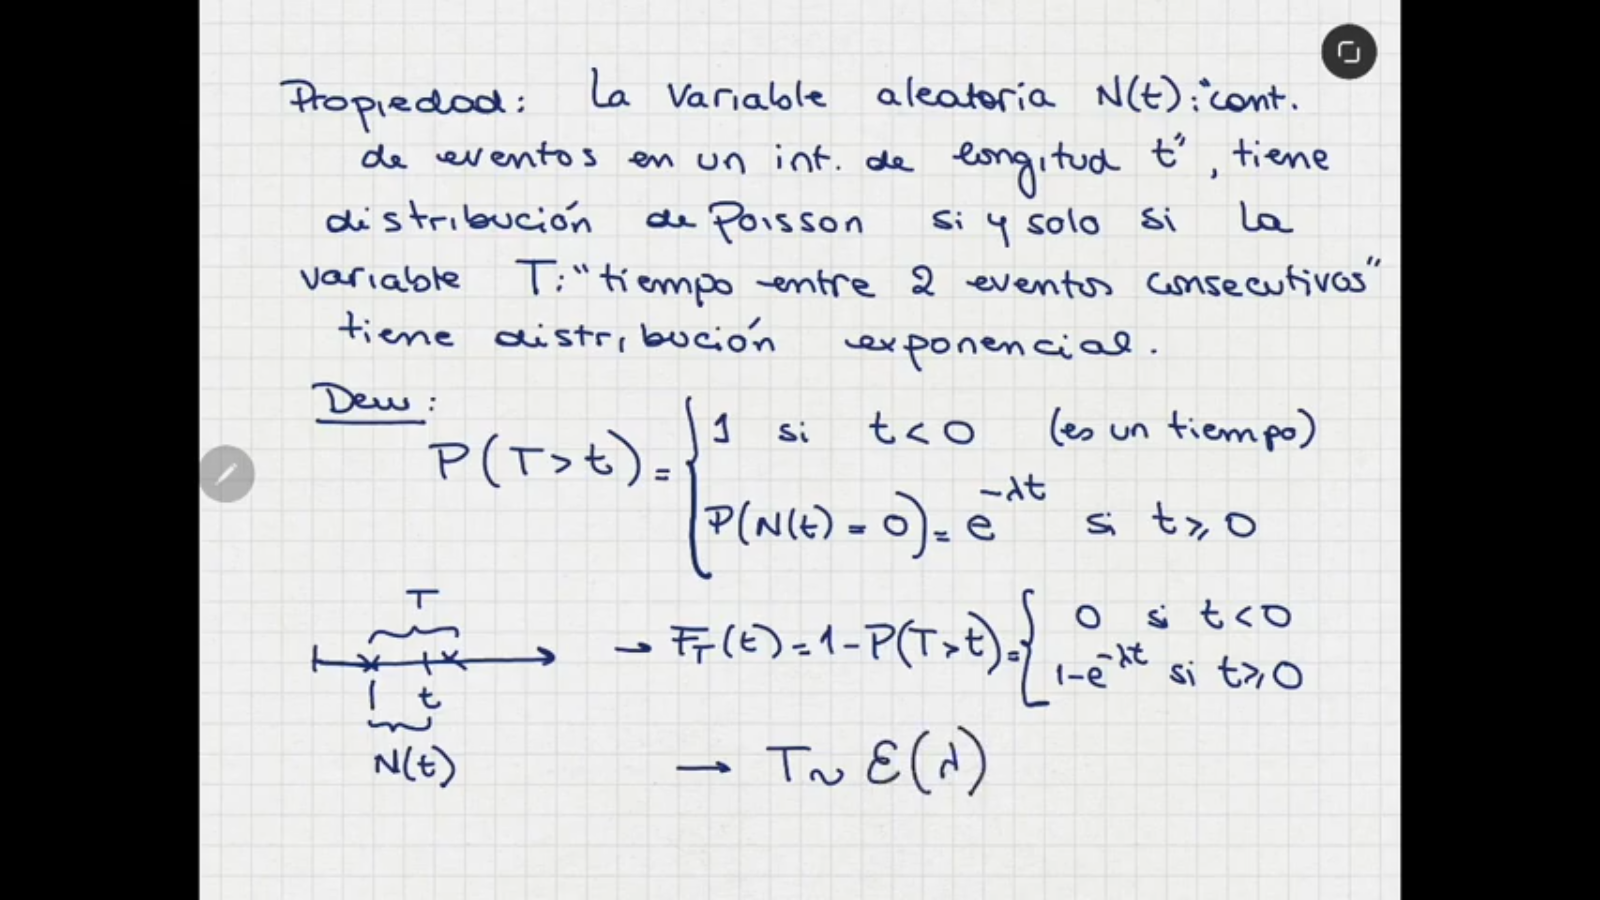 Propiedad: La variable aleatoria N(t): "cant.
de eventos en un int. de longitud t", tiene
distribución de Poisson si y solo si la
variable T: "tiempo entre 2 eventos consecutivos"
tiene distribución exponencial.
Dem:
P(T>t) = { 1 si t<0 (es un tiempo)
P(N(t)=0) = e^{-λt} si t≥0
T
t
N(t)
→ F_T(t) = 1-P(T>t) = { 0 si t<0
1-e^{-λt} si t≥0
→ T~ Ɛ(λ)